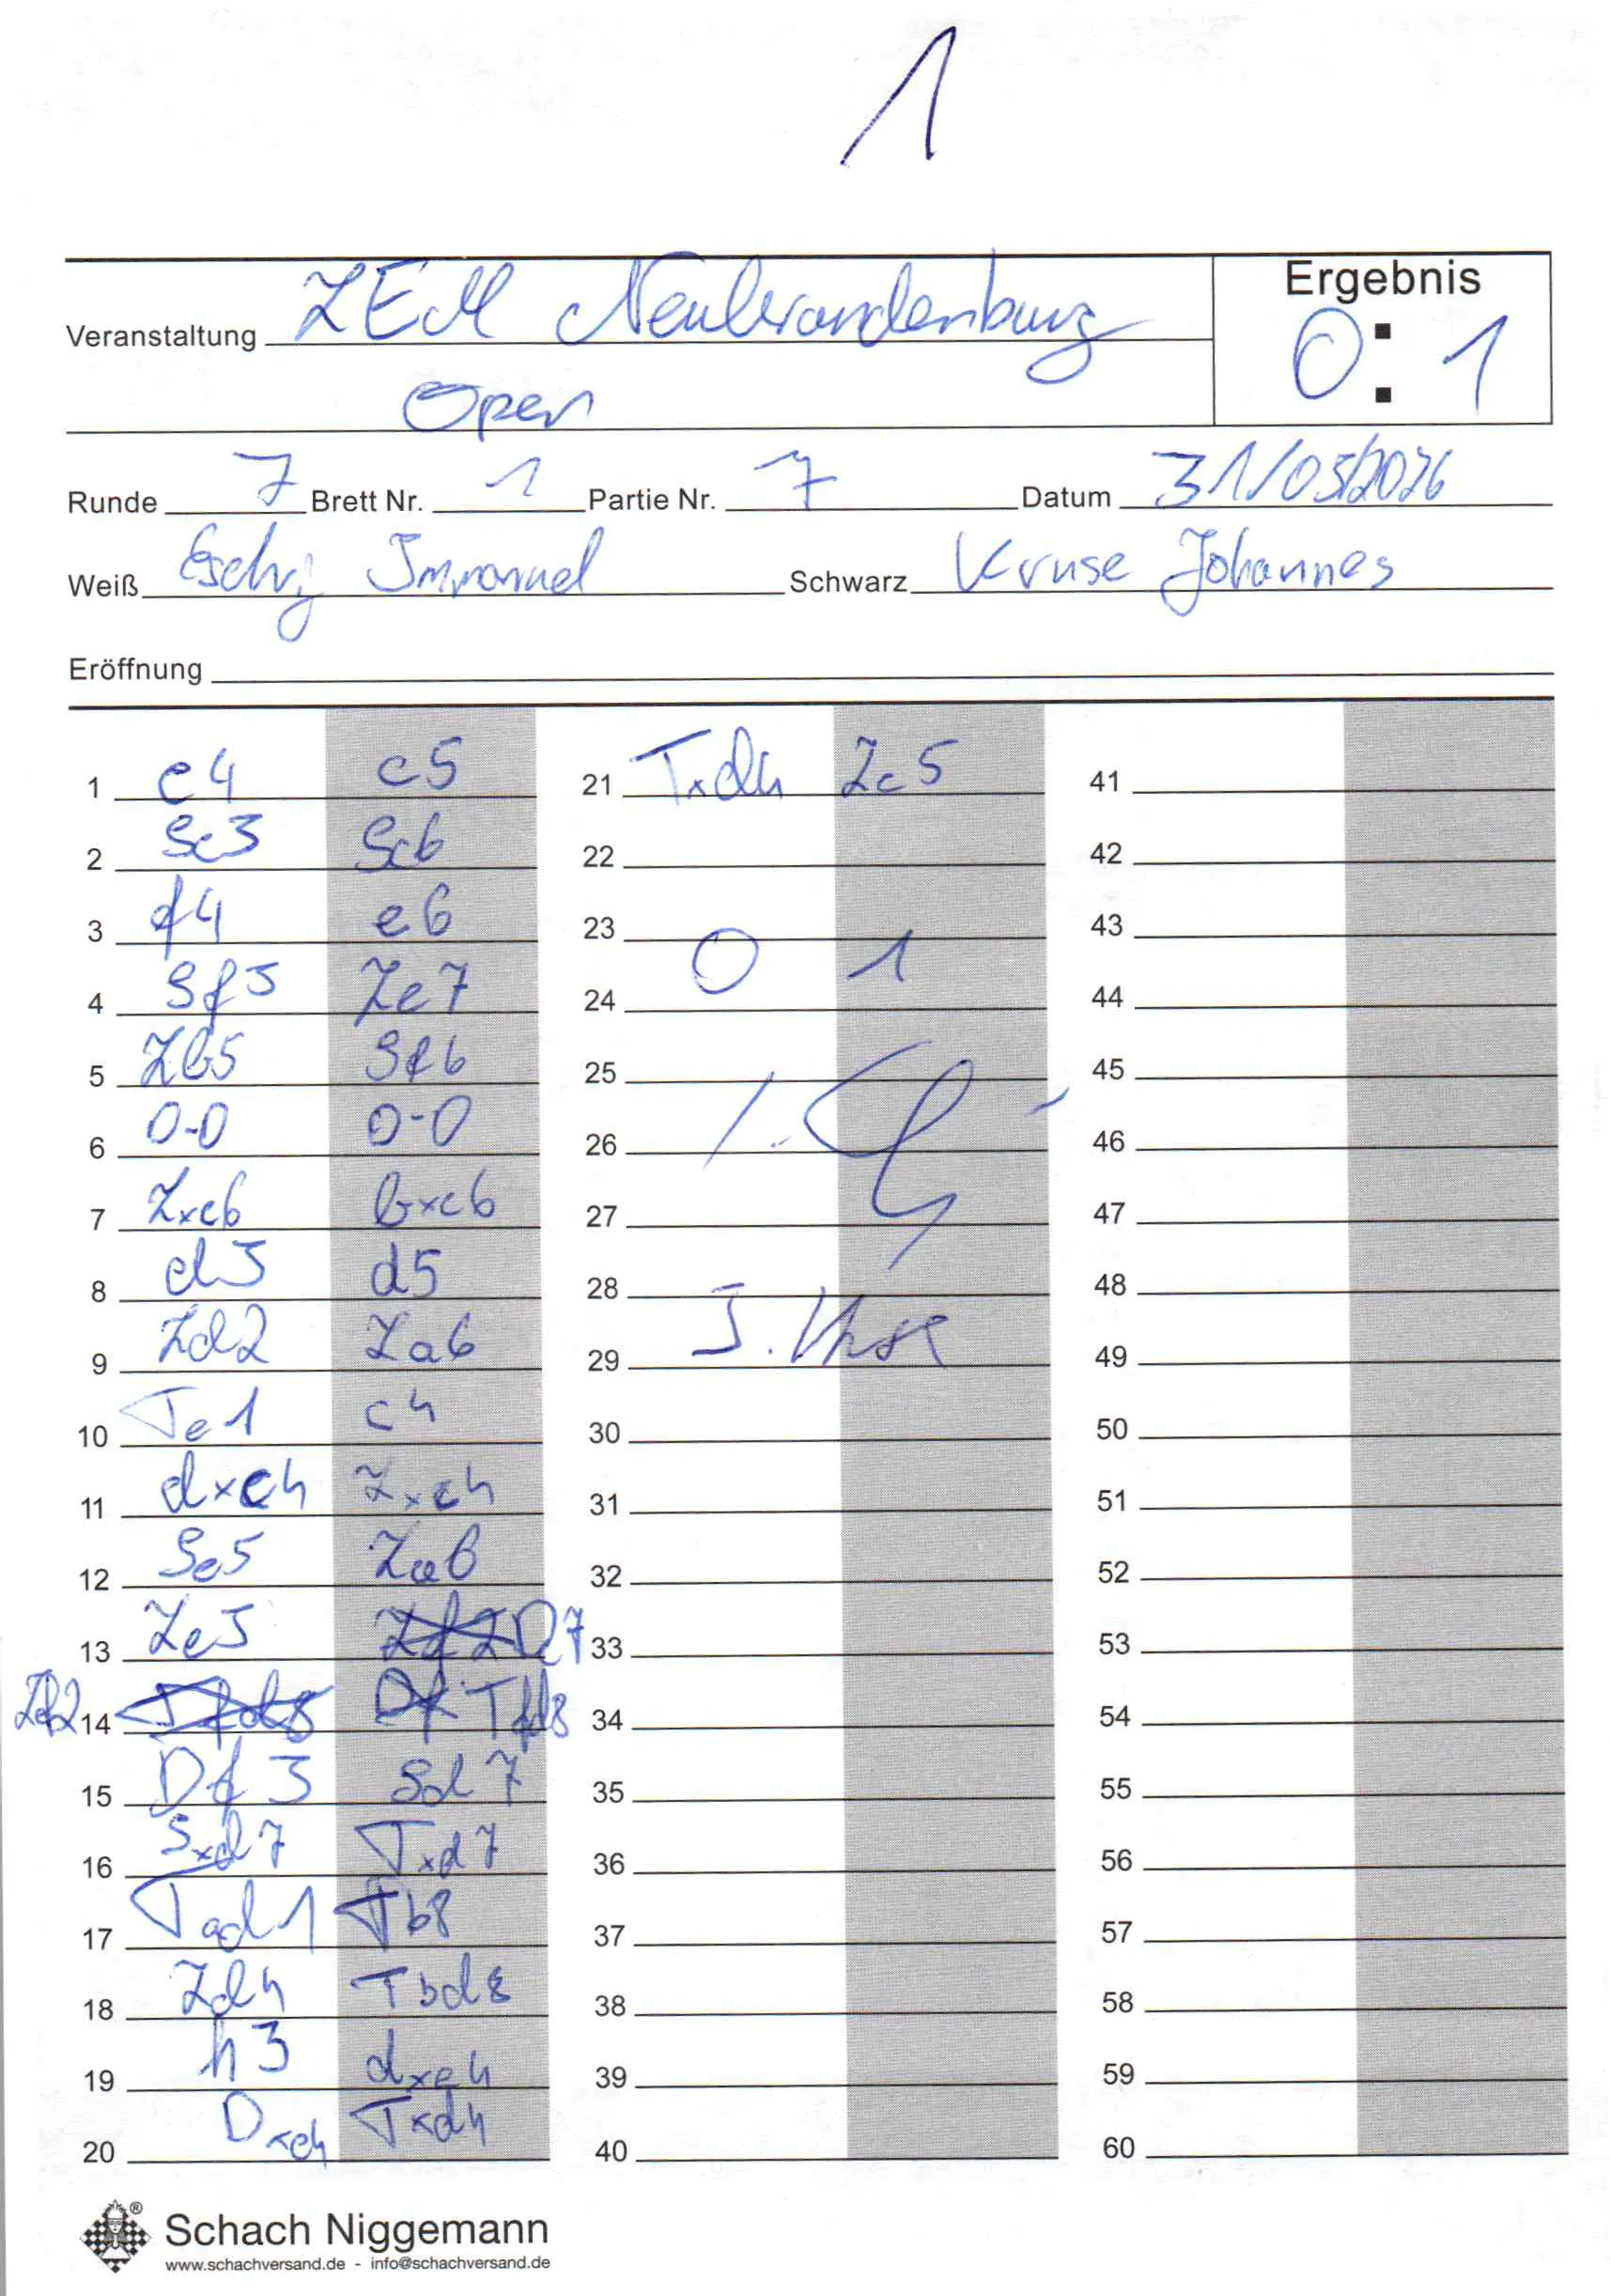 1
Veranstaltung ZEM Neubrandenburg
Open
Ergebnis
0 : 1
Runde 7 Brett Nr. 1 Partie Nr. 7 Datum 31/05/2026
Weiß Immanuel Schwarz Kruse Johannes
Eröffnung
1 e4 c5
2 Sc3 Sc6
3 f4 e6
4 Sf3 Le7
5 Lb5 Sf6
6 0-0 0-0
7 Lxc6 bxc6
8 d3 d5
9 Ld2 La6
10 Te1 c4
11 dxc4 Lxc4
12 Se5 La6
13 Le3 Dc7
14 Lf2 Tfd8
15 Df3 Sd7
16 Sxd7 Txd7
17 Tad1 Tb8
18 Ld4 Tbd8
19 h3 dxe4
20 Dxe4 Txd4
21 Txd4 Lc5
22
23
0 1
24
25
26
27
28
J. Kruse
29
30
31
32
33
34
35
36
37
38
39
40
41
42
43
44
45
46
47
48
49
50
51
52
53
54
55
56
57
58
59
60
Schach Niggemann
www.schachversand.de - info@schachversand.de